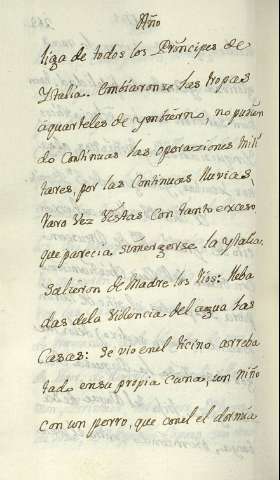 Año
liga de todos los Príncipes de
Ytalia. Embiaronse las tropas
áquarteles de ynbierno, no pudien
do Continuar las operaziones mili
tares, por las Continuas lluvias,
rara vez Vistas con tanto exceso
que parecia sumergerse la ytalia.
Salieron de Madre los rios: lleba
das dela violencia del agua las
Casas: Se vio enel Ticino arreba
tado ensu propia Cama, un niño
con un perro, que conel el dormia